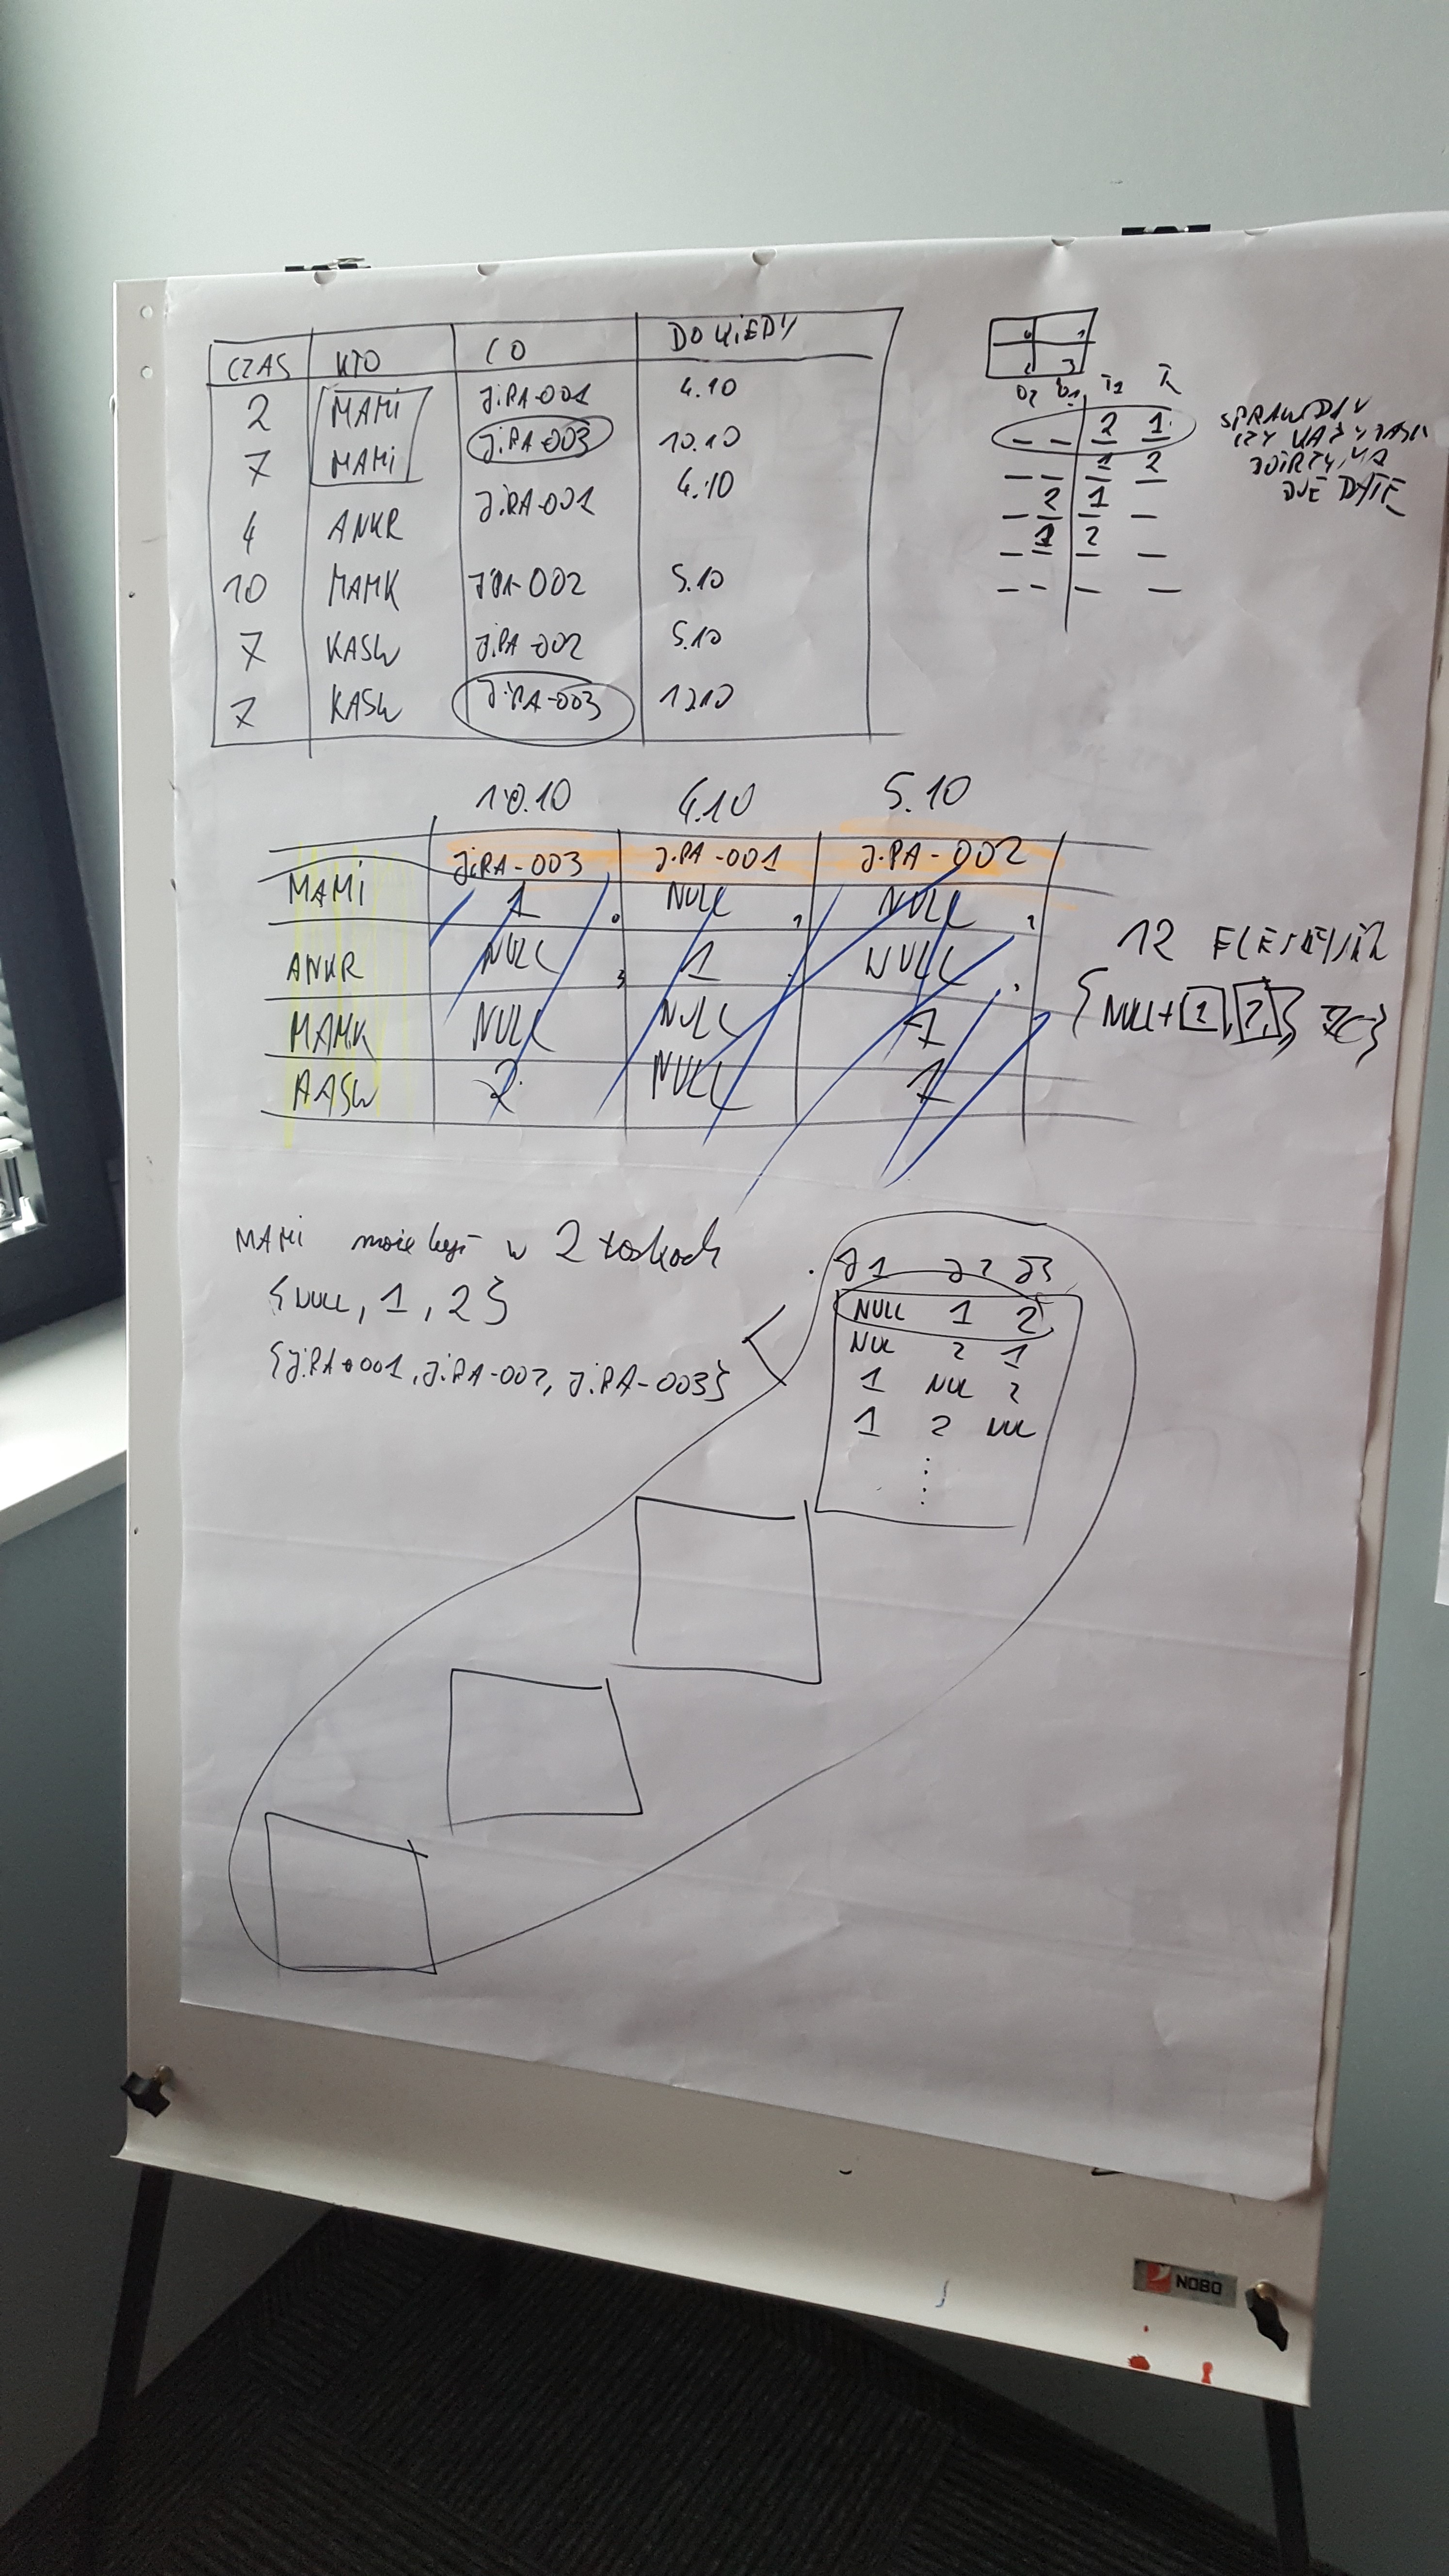 CZAS KTO CO DO KIEDY
2 MAMi JiRA-001 4.10
7 MAMi JiRA-003 10.10
4 ANKR JiRA-001 4.10
10 MAMK JiRA-002 5.10
7 KASW JiRA-002 5.10
7 KASW JiRA-003 1210
2 1
1 2
2 1
1 2
DUE DATE
10.10 4.10 5.10
JiRA-003 JiRA-001 JiRA-002
MAMi 1 NULL NULL
ANKR NULL 1 NULL
MAMK NULL NULL 1
AASW 2 NULL 1
12
{NULL+ 1, 2,}
MAMi może być w 2 taskach
{NULL, 1, 2}
{JiRA-001, JiRA-002, JiRA-003}
J1 J2 J3
NULL 1 2
NUL 2 1
1 NUL 2
1 2 NUL
NOBO